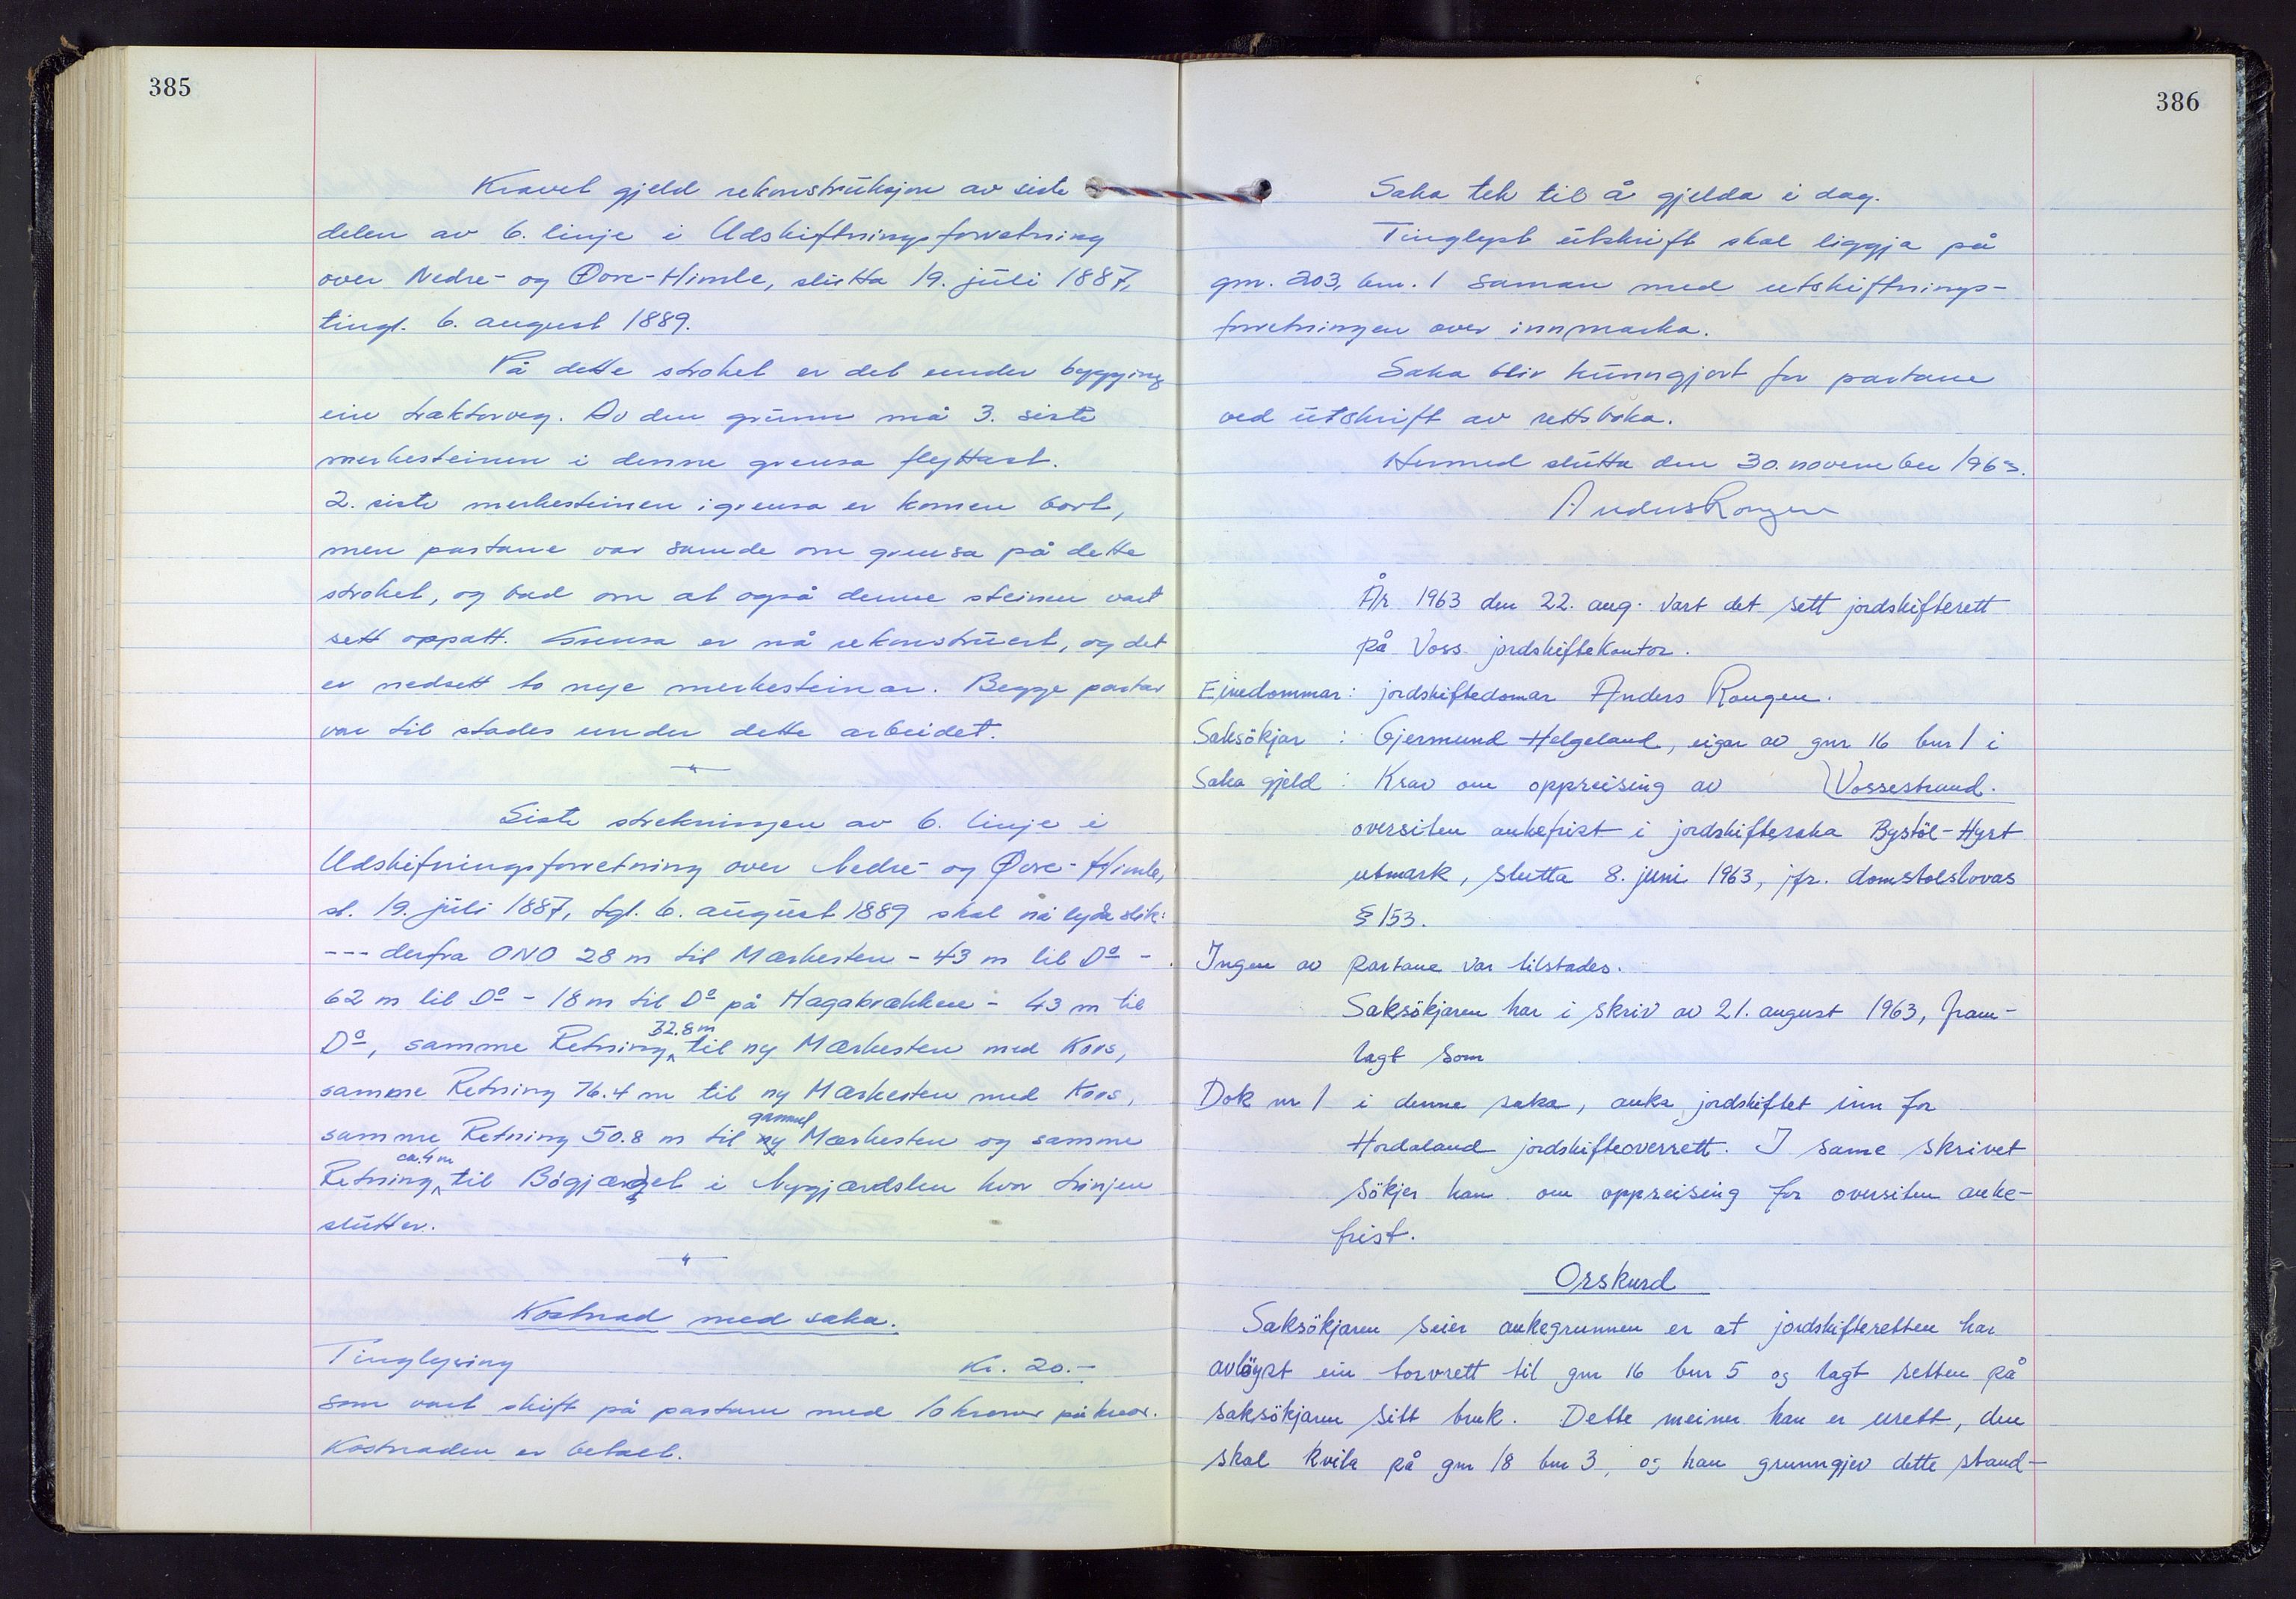 385
Kravet gjeld rekonstruksjon av siste
delen av 6. linje i Udskiftningsforretning
over Nedre- og Øvre-Himle, slutta 19. juli 1887,
tingl. 6. august 1889.
På dette stroket er det under bygging
ein traktorveg. Av den grunn må 3. siste
merkesteinen i denne grensa flyttast.
2. siste merkesteinen i grensa er komen bort,
men partane var samde om grensa på dette
stroket, og bad om at også denne steinen vart
sett oppatt. Grensa er nå rekonstruert, og det
er nedsett to nye merkesteinar. Begge partar
var til stades under dette arbeidet.
Siste strekningen av 6. linje i
Udskifningsforretning over Nedre- og Øvre-Himle,
sl. 19. juli 1887, tgl. 6. august 1889 skal nå lyda slik:
--- derfra ONO 28 m til Mærkesten - 43 m til Dº -
62 m til Dº - 18 m til Dº på Hagabrækken - 43 m til
32.8 m
Dº, samme Retning til ny Mærkesten med Kors,
samme Retning 76.4 m til ny Mærkesten med Kors,
gammel
samme Retning 50.8 m til ny Mærkesten og samme
ca. 4 m
Retning til Bøgjærdet i Nygjærdslen hvor Linjen
slutter.
Kostnad med saka.
Tinglysing Kr. 20.-
som vart skift på partane med 10 kroner på kvar.
Kostnaden er betalt.
386
Saka tek til å gjelda i dag.
Tinglyst utskrift skal liggja på
gnr. 203, bnr. 1 saman med utskiftnings-
forretningen over innmarka.
Saka bliv kunngjort for partane
ved utskrift av rettsboka.
Hermed slutta den 30. november 1963.
Anders Rongen
År 1963 den 22. aug. vart det sett jordskifterett
på Voss jordskiftekontor.
Einedommar: jordskiftedomar Anders Rongen.
Saksökjar : Gjermund Helgeland, eigar av gnr 16 bnr 1 i
Saka gjeld : Krav om oppreising av Vossestrand.
oversiten ankefrist i jordskiftesaka Bystöl-Hyrt
utmark, slutta 8. juni 1963, jfr. domstolslovas
§ 153.
Ingen av partane var tilstades.
Saksökjaren har i skriv av 21. august 1963, fram-
lagt som
Dok nr 1 i denne saka, anka jordskiftet inn for
Hordaland jordskifteoverrett. I same skrivet
sökjer han om oppreising for oversiten anke-
frist.
Orskurd
Saksökjaren seier ankegrunnen er at jordskifteretten har
avlöyst ein torvrett til gnr 16 bnr 5 og lagt retten på
saksökjaren sitt bruk. Dette meiner han er urett, den
skal kvila på gnr 18 bnr 3, og han grunngjev dette stand-